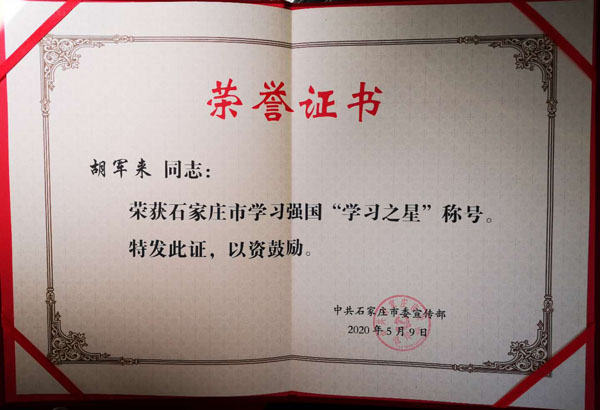 荣誉证书
胡军来 同志：
荣获石家庄市学习强国“学习之星”称号。
特发此证，以资鼓励。
中共石家庄市委宣传部
2020年5月9日